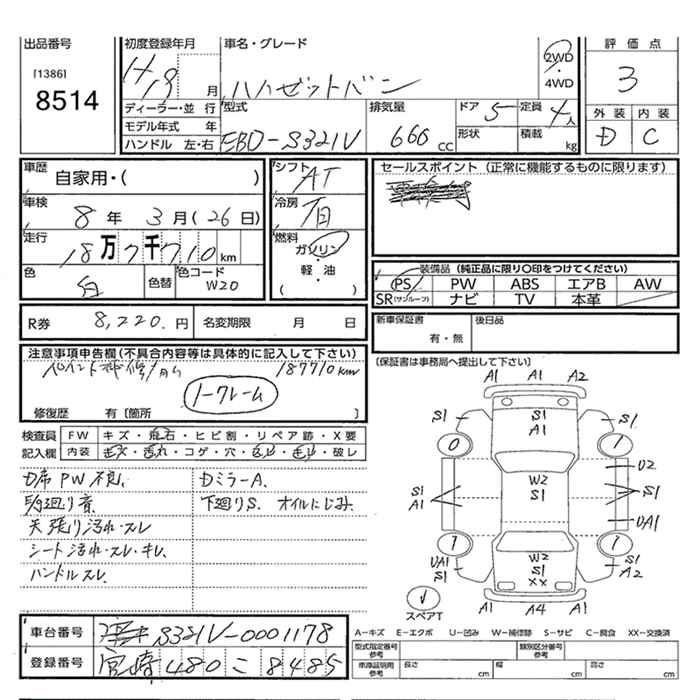 出品番号
[1386]
8514
初度登録年月
H19 月
ディーラー・並 行
モデル年式 年
ハンドル 左・右
車名・グレード
ハイゼットバン
2WD
・
4WD
型式
EBD-S321V
排気量
660 cc
ドア
5
形状
定員
4人
積載
kg
評価点
3
外装 内装
D C
車歴
自家用・( )
車検
8年 3月(26日)
走行
18万7千710km
色
白
色替
色コード
W20
シフト
AT
冷房
燃料
ガソリン
・
軽・油
( )
セールスポイント (正常に機能するものに限ります)
装備品 (純正品に限り〇印をつけてください)
PS PW ABS エアB AW
SR(サンルーフ) ナビ TV 本革
R券 8,220.円 名変期限 月 日
新車保証書
有・無
後日品
(保証書は事務局へ提出して下さい)
注意事項申告欄(不具合内容等は具体的に記入して下さい)
187710km
ノークレーム
修復歴 有〔箇所 〕
検査員
記入欄
FW キズ・飛石・ヒビ割・リペア跡・X要
内装
・コゲ・穴・
・破レ
D席PW不良.
天張り汚れ・スレ
シート汚れ・スレ・キレ.
ハンドルスレ.
DミラーA.
下廻りS. オイルにじみ.
A1 A1 A2
S1 S1 A1 S1
0 1
U2
S1 A1 W2 S1 S1
UA1
1 1
UA1 S1 W2 S1 XX S1 A2
スペアT
A1 A4 A1
車台番号 S321V-0001178
登録番号 宮崎 480 こ 8485
A-キズ E-エクボ U-凹み W-補修跡 S-サビ C-腐食 XX-交換済
型式指定番号
参考
類別区分番号
参考
車庫証明用
参考
長さ cm 幅 cm 高さ cm